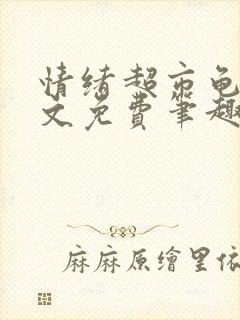 情绪超市龟
文免费笔趣
麻麻原繪里依